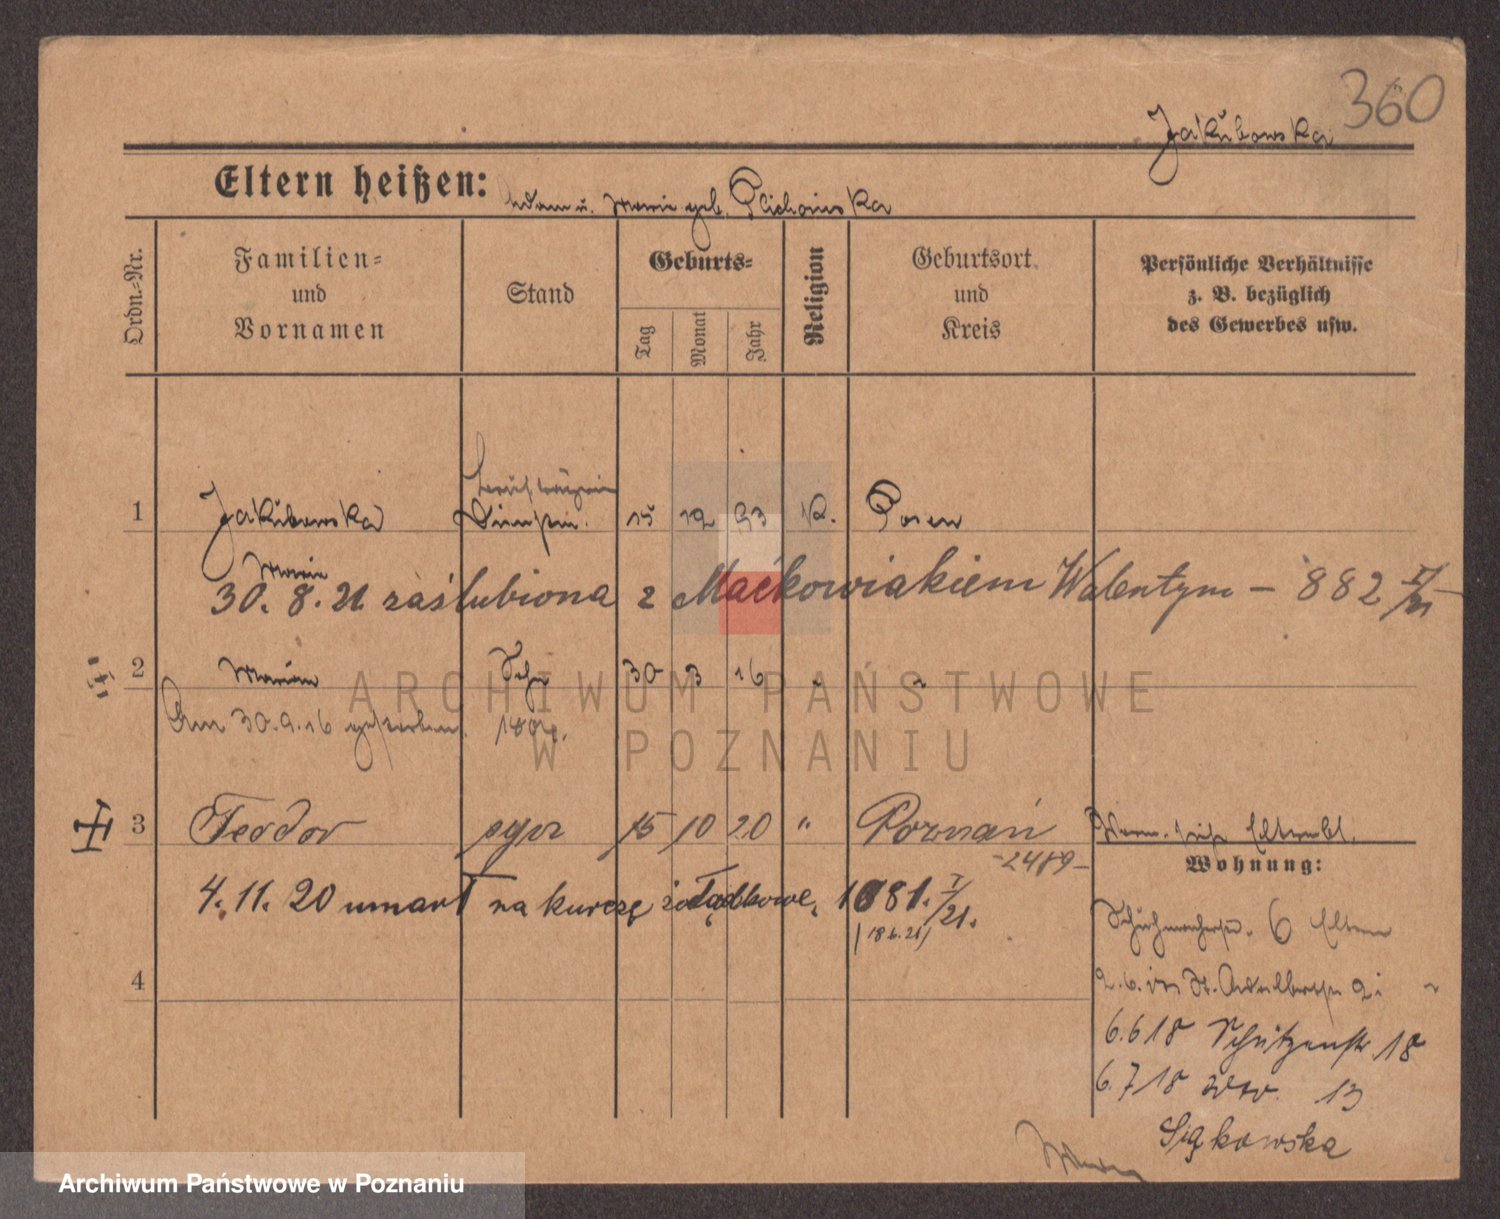 360
Jakubowska
Eltern heißen: Adam u. Marie geb. Plichcińska
Ordn.-Nr.
Familien-
und
Vornamen
Stand
Geburts-
Tag
Monat
Jahr
Religion
Geburtsort
und
Kreis
Persönliche Verhältnisse
z. B. bezüglich
des Gewerbes usw.
1 Jakubowska 15 12 93 K. Posen
Marie
30. 8. 21 zaślubiona z Maćkowiakiem Walentym – 882
2 Marian Sohn 30 3 16 " "
Am 30.9.16 gestorben.
3 Teodor syn 15 10 20 " Poznań
-2489-
4. 11. 20 umarł na kurczę żołądkowe, 1081. I/21.
(18.6.21)
4
Wohnung:
Schuhmacherstr. 6 Eltern
2.6. St. Adalbertstr. 2
6.6 18 Schützenstr 18
6.7 18 13
Siękowska
ARCHIWUM PAŃSTWOWE
W POZNANIU
Archiwum Państwowe w Poznaniu